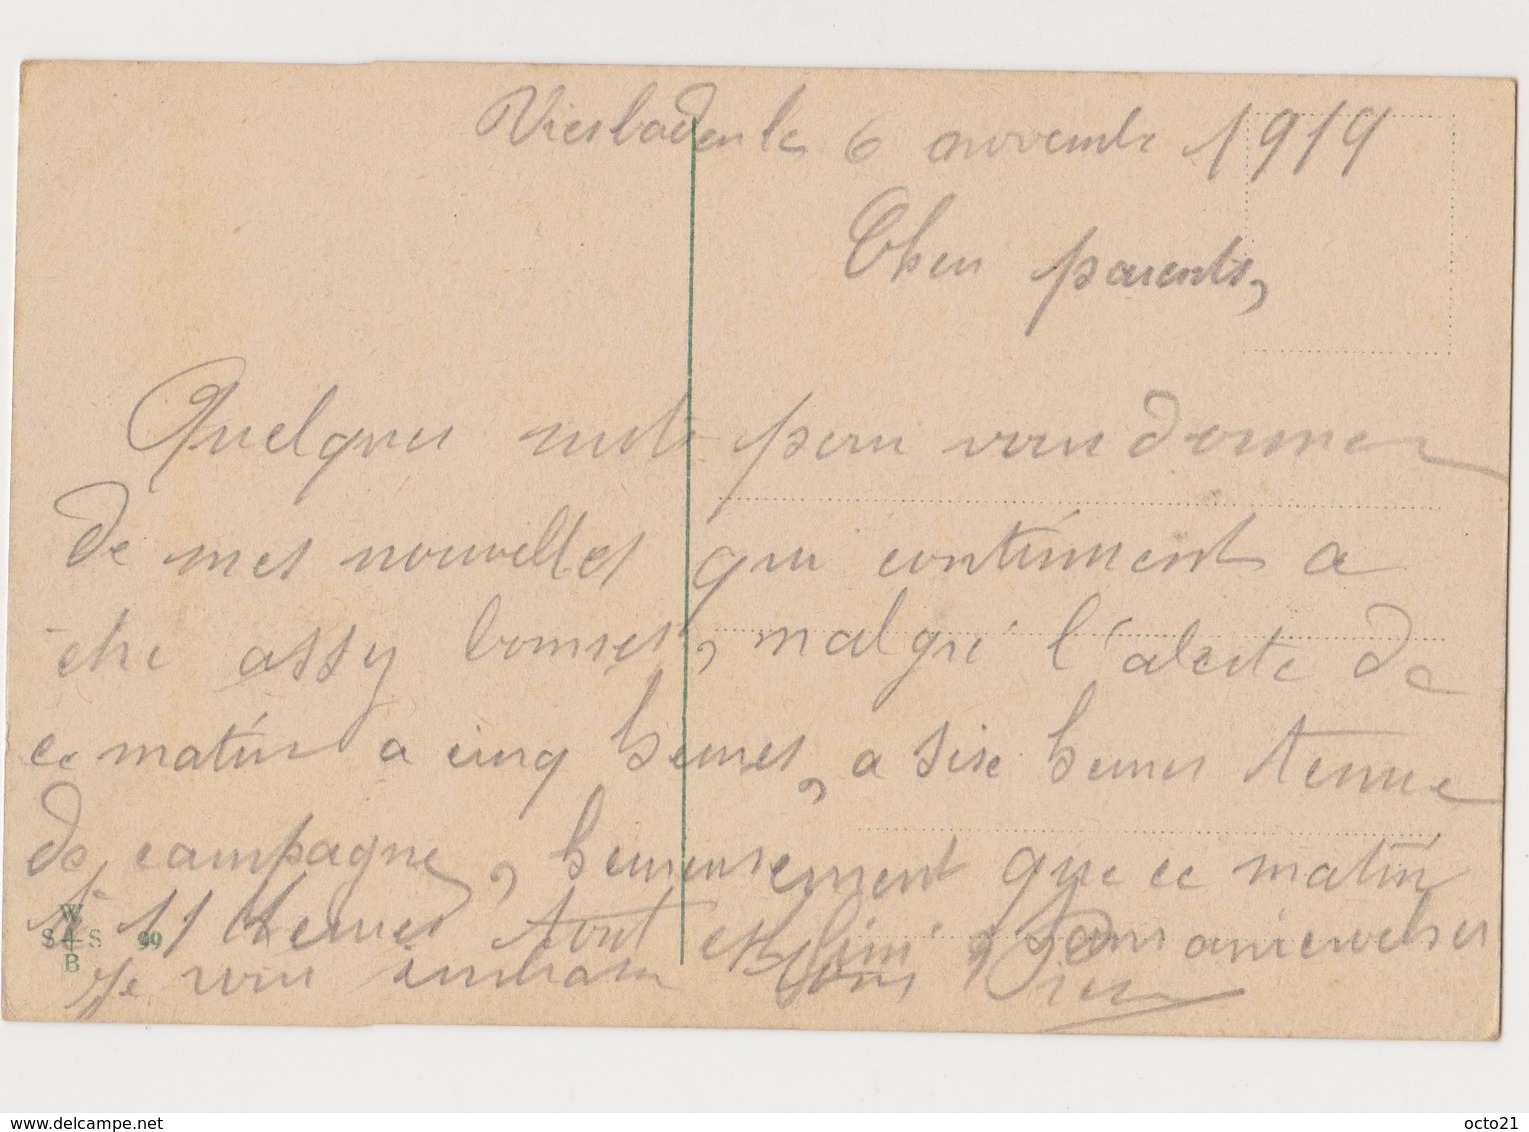 Viesbaden le 6 novembre 1919
Chers parents,
Quelques mots pour vous donner
de mes nouvelles qui continuent a
être assy bonnes, malgré l'alerte de
ce matin a cinq heures, a sise heures tenue
de campagne, heureusement que ce matin
à 11 heures tout est fini,
Je vous embrasse tous
W
S S
B
99
www.delcampe.net
octo21